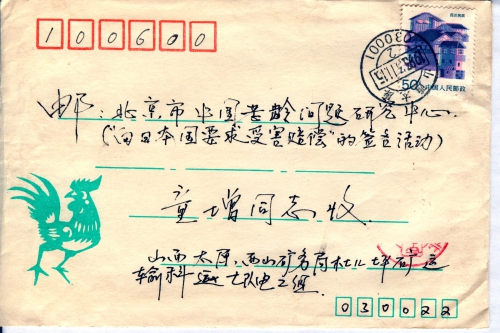 100600
50分 中国人民邮政
030001
邮：北京市中国老龄问题研究中心
（"向日本国要求受害赔偿"的签名活动）
童增同志收
山西太原西山矿务局杜儿坪矿运
输科 电工组
030022